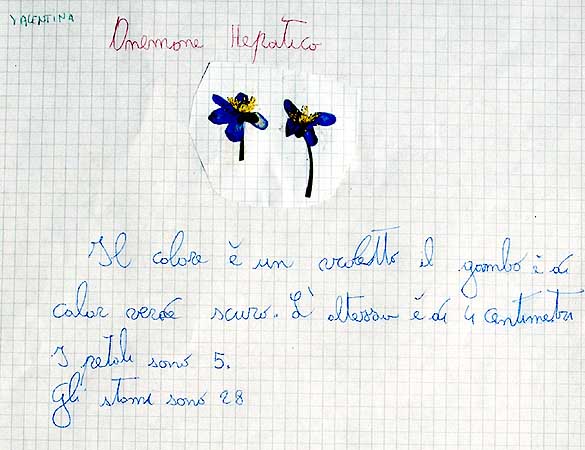 VALENTINA
Anemone Hepatico
Il colore è un violetto il gambo è di
color verde scuro. L'altezza è di 4 centimetri
I petali sono 5.
Gli stami sono 28